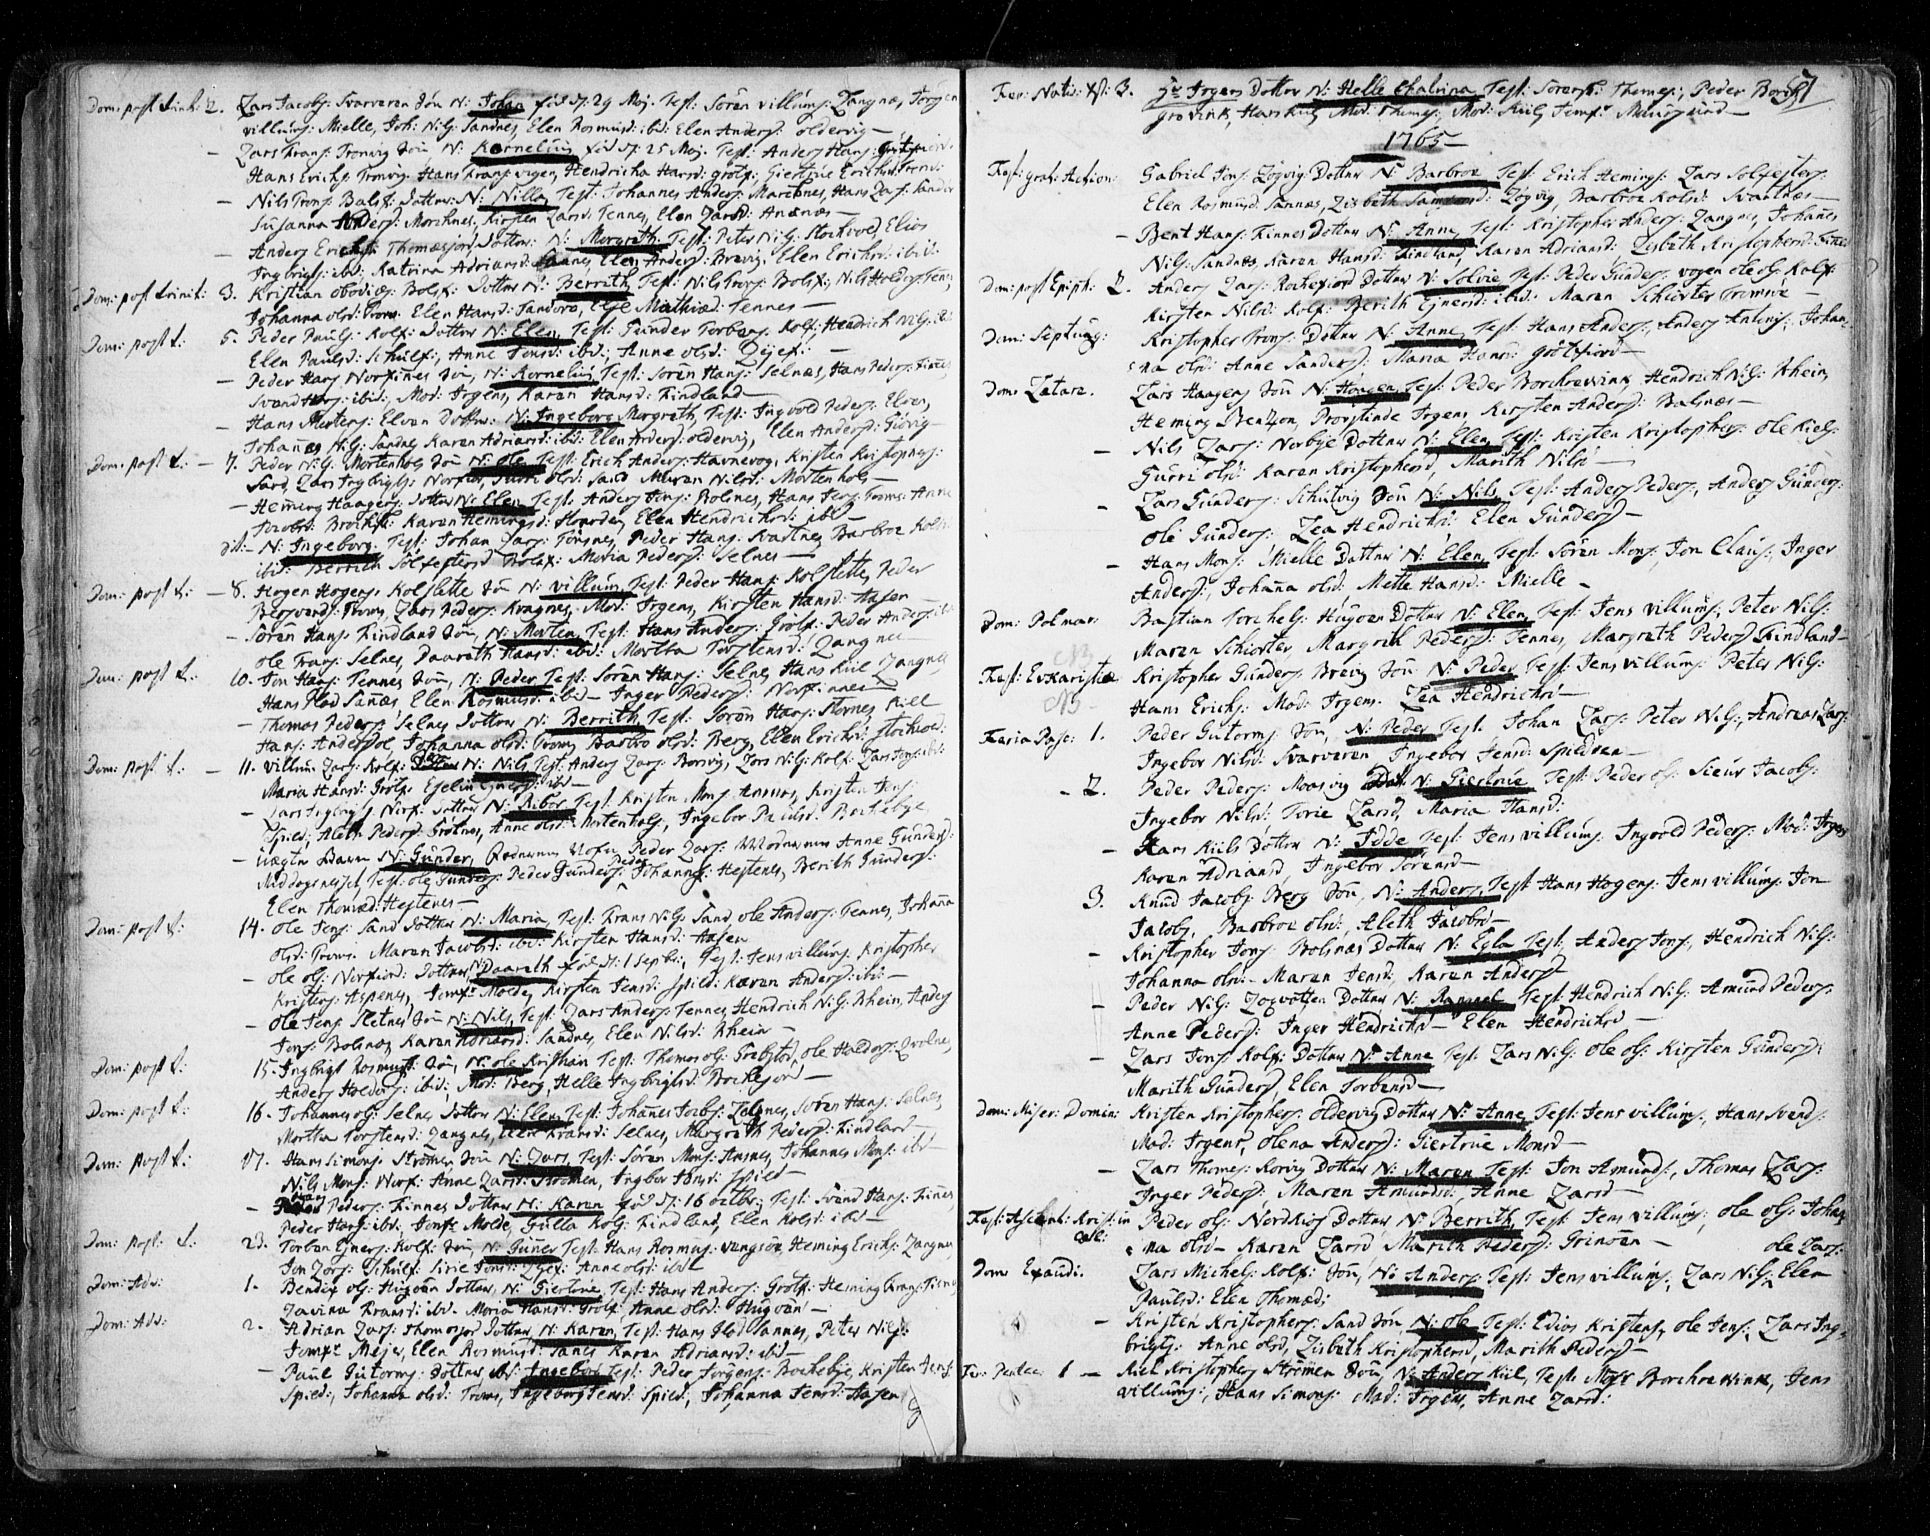 Dom: post Trinit: 2. Lars Jacobs: Svarveren Søn N: Johan fød d: 29 Maj. Test: Sören Villums: Langnæs, Jørgen
Villums: Mielle, Joh: Nils: Sandnes, Elen Rasmusd: ibid: Elen Andersd: oldervig —
— Lars Frans: Tronvig Søn N: Kornelius fød d: 25 Maj. Test: Anders Hans:
Hans Erichs: Tronvig Hans Frans: Vigen, Hendricha Hansd: Grötf: Giertrue Erichsd:
— Nils Trons: Balsf: Dotter N: Nilla Test: Johannes Anders: Marchnes, Hans Lars: Sandnes
Susanna Andersd: Morchnes, Kirsten Larsd: Tennes, Elen Larsd: Ansnæs —
— Anders Erichs: Thomasjord Dotter: N: Morgreth Test: Peter Nils: Stockvold, Elias
Ingbrigts: ibid: Katrina Adriansd: Sannes, Elen Andersd: Brevig, Elen Erichsd: ibid:
Dom: post Trinit: 3. Kristian obodias: Balsf: Dotter N: Berrith Test: Nils Trons: Balsf:, Nils Haldors: Tennes
Johanna olsd: Troms: Elen Hansd: Sandøra, Elsje Mathiasd: Tennes —
Dom: post d: 5. Peder Pauls: Kalf: Dotter N: Elen, Test: Gunder Torbens: Kalf:, Hendrich Nils:
Elen Paulsd: Schulf:, Anne Jonsd: ibid:, Anne olsd:
— Peder Hans: Norfinnes Søn, N: Kornelius, Test: Sören Hans: Selnæs, Hans Peders: Finnes
Svend Hans: ibid:, Mod: Irgens, Karen Hansd: Kindland
— Hans Mortens: Elven Dotter: N: Ingeborg Morgreth, Test: Ingvold Peders: Elven,
Johannes Nils: Sandnes Karen Adriansd: ibid: Elen Andersd: oldervig, Elen Andersd: Giövig
Dom: post d: — 7. Peder Nils: Mortenhols Søn N: ole Test: Erich Anders: Havnevog, Kristen Kristophers:
Sand, Lars Ingbrigts: Norfior, Gurri olsd: Sand Maren Nilsd: Mortenhols —
— Heming Haagens: Dotter N: Elen Test: Anders Jens: Bolnes, Hans Jens: Troms: Anne
Jacobsd: Brochsk: Karen Hemingsd: Haarden, Elen Hendrichsd: ibd
dit: — N: Ingeborg Test: Johan Lars: Tønsnes, Peder Hans: Svartnes, Barbroe Kolsd:
ibid: Berrith Sölfestersd: Balsf: Maria Pedersd: Selnes —
Dom: post d: — 8. Hogen Hogens: Kolslette Søn N: Villum, Test: Peder Hans: Kolslette, Peder
Bergvend: Troms, Lars Peders: Kragnes, Mod: Irgens, Kirsten Hansd: Aasen
— Sören Hans: Kindland Søn, N: Morten, Test: Hans Anders: Grötf: Peder Anders: ibid
ole Frans: Selnes, Daarath Hansd: ibd: Martha Torstensd: Langnes —
Dom: post d: 10. Jon Hans: Tennes Søn, N: Peder Test: Sören Hans: Selnes Hans Kiil Langnes
Hans Flod Sannes, Elen Rasmusd: ibid — Inger Pedersd: Norfinnes
— Thomas Peders: Selnes Dotter N: Berrith Test: Sörön Hans: Stornes, Kiel
Hans: Andersdal, Johanna olsd: Troms, Barbro olsd: Berg, Elen Erichsd: Stockvold:
Dom: post d: — 11. Villum Lars: Kolf: Søn N: Nils Test: Anders Lars: Borsvig, Lars Nils: Kolf: Lars Jons: ibid:
Maria Hansd: Grötf: Egelin Gunersd: ibid —
— Lars Ingbrigts: Norf: Dotter N: Ribor Test: Kristen Mons: Ansnæs, Kristen Jens:
Spild:, Aleth Pedersd: Grötnes, Anne olsd: Mortenhols, Ingebor Paulsd: Bochebye
— Uægte Barn N: Gunder, Peder Lars: Anne Gundersd:
Middagsnes, Test: ole Gunders: Peder Gunders: Peder Johannes: Hestenes, Berith Gundersd:
Elen Thomæd: Hestenes —
Dom: post d: 14. ole Jens: Sand Dotter N: Maria, Test: Frans Nils: Sand, ole Anders: Tennes, Johanna
olsd: Troms: Maren Jacobsd: ibid: Kirsten Hansd: Aasen
— ole ols: Norfior: Dotter N: Daarath fød d: 1 Septbr:, Test: Jens Villums: Kristopher
Kristens: Aspenes, Jomfr Molde, Kirsten Jensd: Spild: Karen Andersd: ibd: —
— ole Jens: Sletnes Søn N: Nils, Test: Lars Anders: Tennes, Hendrich Nils: Rhein, Anders
Jons: Bolnæs, Karen Adriansd: Sandnes, Elen Nilsd: Rhein —
Dom: post d: 15. Ingbrigt Rasmus: Søn, N: ole Kristian Test: Thomas ols: Grebstad, ole Haldors: Qvalnes
Anders Haldors: ibid:, Mod: Berg, Helle Ingbrigtsd: Bochejord —
Dom: post d: 16. Johannes ols: Selnes Dotter N: Elen Test: Johannes Jacobs: Selnes, Sören Hans: Selnes,
Martha Torstensd: Langnes, Elen Fransd: Selnes, Margreth Pedersd: Kindland —
Dom: post d: 17. Hans Simons: Strømen Søn N: Lars, Test: Sören Mons: Ansnes, Johannes Mons: ibd —
Nils Mons: Norf: Anne Larsd: Strømen, Ingbor Jonsd: Spild —
— Peders: Finnes Dotter N: Karen fød d: 16 octbr:, Test: Svend Hans: Finnes
Peder Hans: ibid:, Jomfr Molde, Gulla Kols: Kindland, Elen Kolsd: ibid —
Dom: post: d: 23. Torben Ejners: Kolf: Søn, N: Guner Test: Hans Rasmus: Vengsøe, Heming Erichs: Langnes
Jon Lars: Schulf: Sirie Jonsd: Anne olsd: ibid
Dom: Adv: 1. Bendix ols: Hugøen Dotter, N: Giertrue, Test: Hans Anders: Grötf: Heming Frans: Tisnes
Lavina Fransd: ibd. Maria Hansd: Grötf: Anne olsd: Hugøen —
Dom: Adv: 2. Adrian Lars: Thomasjor Dotter, N: Karen, Test: Hans Flod Sannes, Peter Nils:
Jomfr Mejer, Elen Rasmusd: Sanes Karen Adriansd: ibid —
— Paul Gutorms: Dotter ibd: Ingebor Test: Peder Jörgens: Bochebye, Kristen Jens:
Spild:, Johanna olsd: Troms, Ingeborg Jensd: Spild, Johanna Jensd: Aasen
57
Fer: Nativ: Xsti: 3. Hr Irgens Dotter N: Helle Chatrina Test: Sorensk: Thomes:, Peder Borch
grevink, Hans Kiil, Mad: Thomes: Mad: Kiil, Jomfr Maursund —
1765 —
Fest: grat: Action: Gabriel Jons: Løgvig Dotter N: Barbroe Test: Erich Hemings: Lars Solfesters:
Elen Rasmusd: Sannes, Lisbeth Samsond: Løgvig, Barbroe Kolsd: Svartnes —
— Bent Hans: Finnes Dotter N: Anne Test: Kristopher Anders: Langnes, Johannes
Nils: Sandnes, Karen Hansd: Kindland, Karen Adriansd: Lisbeth Kristophersd: Finnes
Dom: post Epiph: 2. Anders Lars: Rachefiord Dotter N: Solvie Test: Peder Gunders: Vogen ole ols: Kalf:
Kirsten Nilsd: Kalf: Berith Ejnersd: ibid: Maren Schierter Tromsøe —
Dom: Septuag: Kristopher Trons: Dotter N: Anne, Test: Hans Anders:, Anders Antons:, Johan-
na olsd: Anne Sandersd: Maria Hansd: Grötfiord —
Dom Lætare. Lars Haagens Søn N: Haagen Test: Peder Borchrewink, Hendrich Nils: Rhein,
Heming Brentzon, Provstinde Irgens Kirsten Andersd: Balsnæs —
— Nils Lars: Norbye Dotter N: Elen Test: Kristen Kristophers: ole Kiels:
Gurri olsd: Karen Kristophersd, Marith Nilsd —
— Lars Gunders: Schulvig Søn N: Nils, Test: Anders Peders:, Anders Gunders:
ole Gunders: Lea Hendrichsd: Elen Gundersd —
— Hans Mons: Mielle Dotter N: Elen, Test: Sören Mons:, Jon Claus:, Inger
Andersd:, Johana olsd: Mette Hansd: Mielle —
Dom: Palmar: Bastian Torchels: Hugøen Dotter N: Elen Test: Jens Villums: Peter Nils:
Maren Schierter, Margreth Pedersd: Tennes, Margreth Pedersd Kindland —
Fest: Evkaristiæ Kristopher Gunders: Brevig Søn N: Peder Test: Jens Villums: Peter Nils:
Hans Erichs: Mod: Irgens. Lea Hendrichsd —
Feria Pasc: 1. Peder Gutorms: Søn, N: Peder Test: Johan Lars: Peter Nils:, Andreas Lars:
Ingebor Nilsd: Svarveren Ingebor Jensd: Spildren —
— 2. Peder Peders: Maasvig Dott N: Giertrue Test: Peder ols: Sieur Jacobs:
Ingebor Nilsd: Torie Larsd, Maria Hansd:
— Hans Kiils Dotter N: Idde Test: Jens Villums: Ingvold Peders: Mod: Irgens
Karen Adriansd, Ingebor Sörensd —
3. Knud Jacobs: Berg Søn, N: Anders, Test Hans Hogens: Jens Villums: Jon
Jacobs, Barbroe olsd:, Aleth Jacobsd —
— Kristopher Jons: Bolsnæs Dotter N: Egla Test: Anders Jons:, Hendrich Nils:
Johanna olsd: — Maren Jensd, Karen Andersd
— Peder Nils: Løgvatten Dotter N: Rangnel Test: Hendrich Nils: Amund Peders:
Anne Pedersd: Inger Hendrichsd — Elen Hendrichsd —
— Lars Jons: Kolf: Dotter N: Anne Test: Lars Nils: ole ols: Kirsten Gundersd:
Marith Gundersd, Elen Torbensd —
Dom: Miser: Domin: Kristen Kristophers: oldervig Dotter N: Anne, Test: Jens Villums:, Hans Svends:
Mad: Irgens, olena Andersd: Giertrue Monsd —
— Lars Thomes: Korvig Dotter N: Maren Test: Jon Amunds:, Thomas Lars:
Inger Pedersd: Maren Amundsd:, Anne Larsd —
Fest: Ascens: Kristi in cæl: Peder ols: Nordkios Dotter N: Berrith, Test: Jens Villums:, ole ols: Johan-
na olsd — Karen Larsd Marith Pedersd: Grinøen —
ole Lars:
Dom Exaudi. Lars Michels: Kolf: Søn, N: Anders Test: Jens Villums:, Lars Nils: Elen
Paulsd: Elen Thomæd:
— Kristen Kristophers: Sand Søn N: ole Test: Edias Kristens:, ole Jens:, Lars Ing-
brigts: Anne olsd, Lisbeth Kristophersd, Marith Pedersd —
Fer: Pentec: 1 — Kiel Kristophers: Strömen Søn, N: Anders Kiil, Test: Borchrewink, Jens
Villums:, Hans Simons: Mad: Irgens, Anne Larsd: